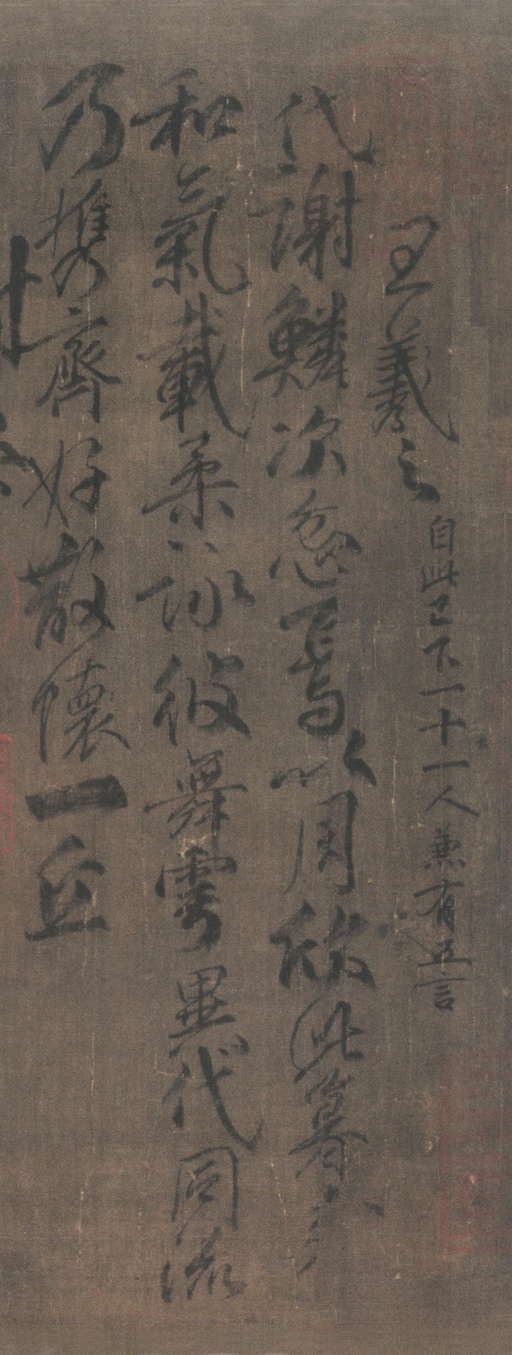 王羲之 自此已下一十一人兼有五言
代謝鱗次忽焉以周欣此暮春
和氣載柔詠彼舞雩異代同流
乃携齊好散懷一丘